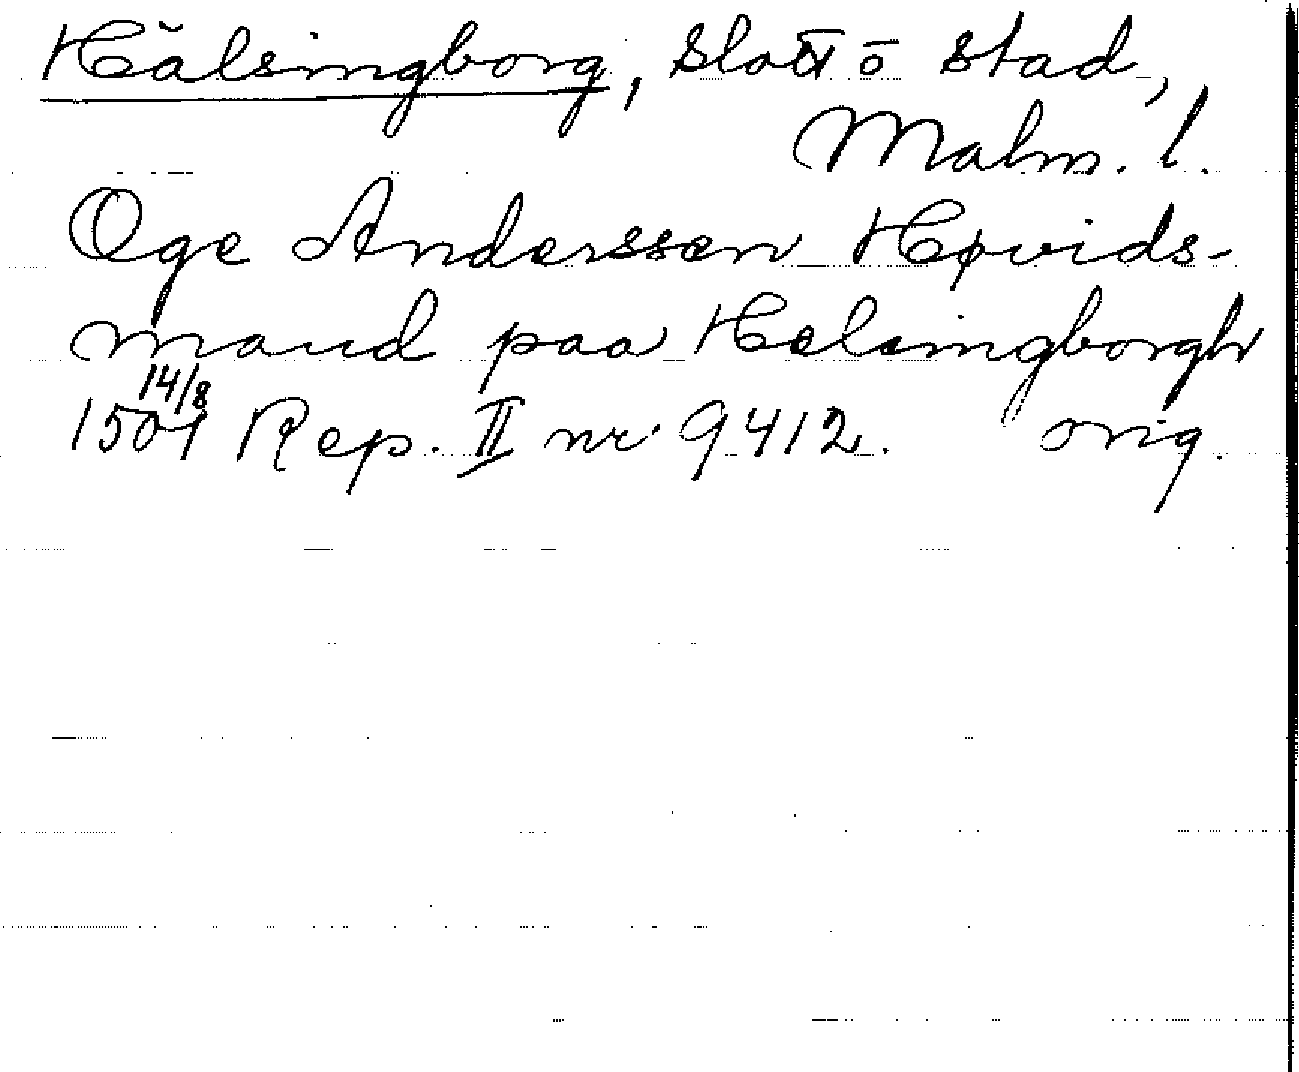 Hälsingborg, Slott o stad,
Malm. l.
Oge Anderssøn Høvids-
mand paa Helsingborgh
14/8
1501 Rep. II nr 9412. orig.